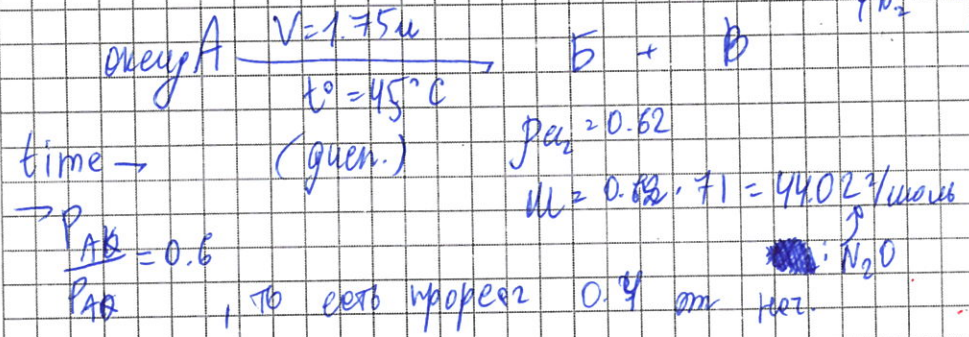 N₂
оксид A V=1.75л Б + В
t° = 45°C
time → (дисп.) ρCl₂ = 0.62
M = 0.62 · 71 = 44.02 г/моль
→ PAК/PAО = 0.6 : N₂O
, то есть прореаг 0.4 от нач.